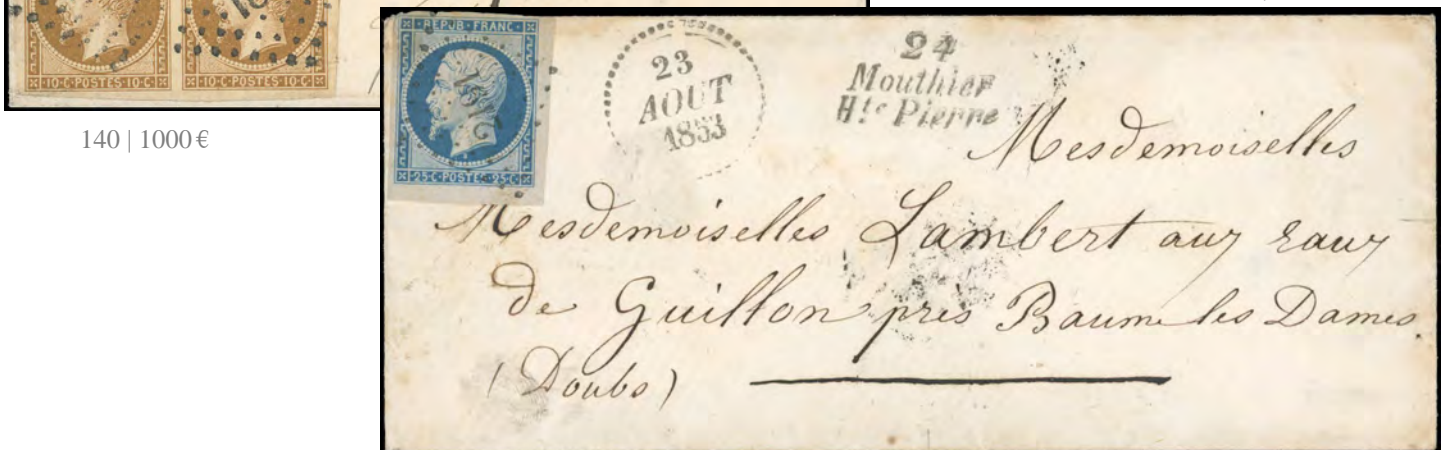 10·C·POSTES·10·C
10·C·POSTES·10·C
140 | 1000 €
REPUB·FRANC
25·C·POSTES·25·C
23
AOUT
1853
24
Mouthier
Hte Pierre
Mesdemoiselles
Mesdemoiselles Lambert aux eaux
de Guillon près Baume les Dames
(Doubs)